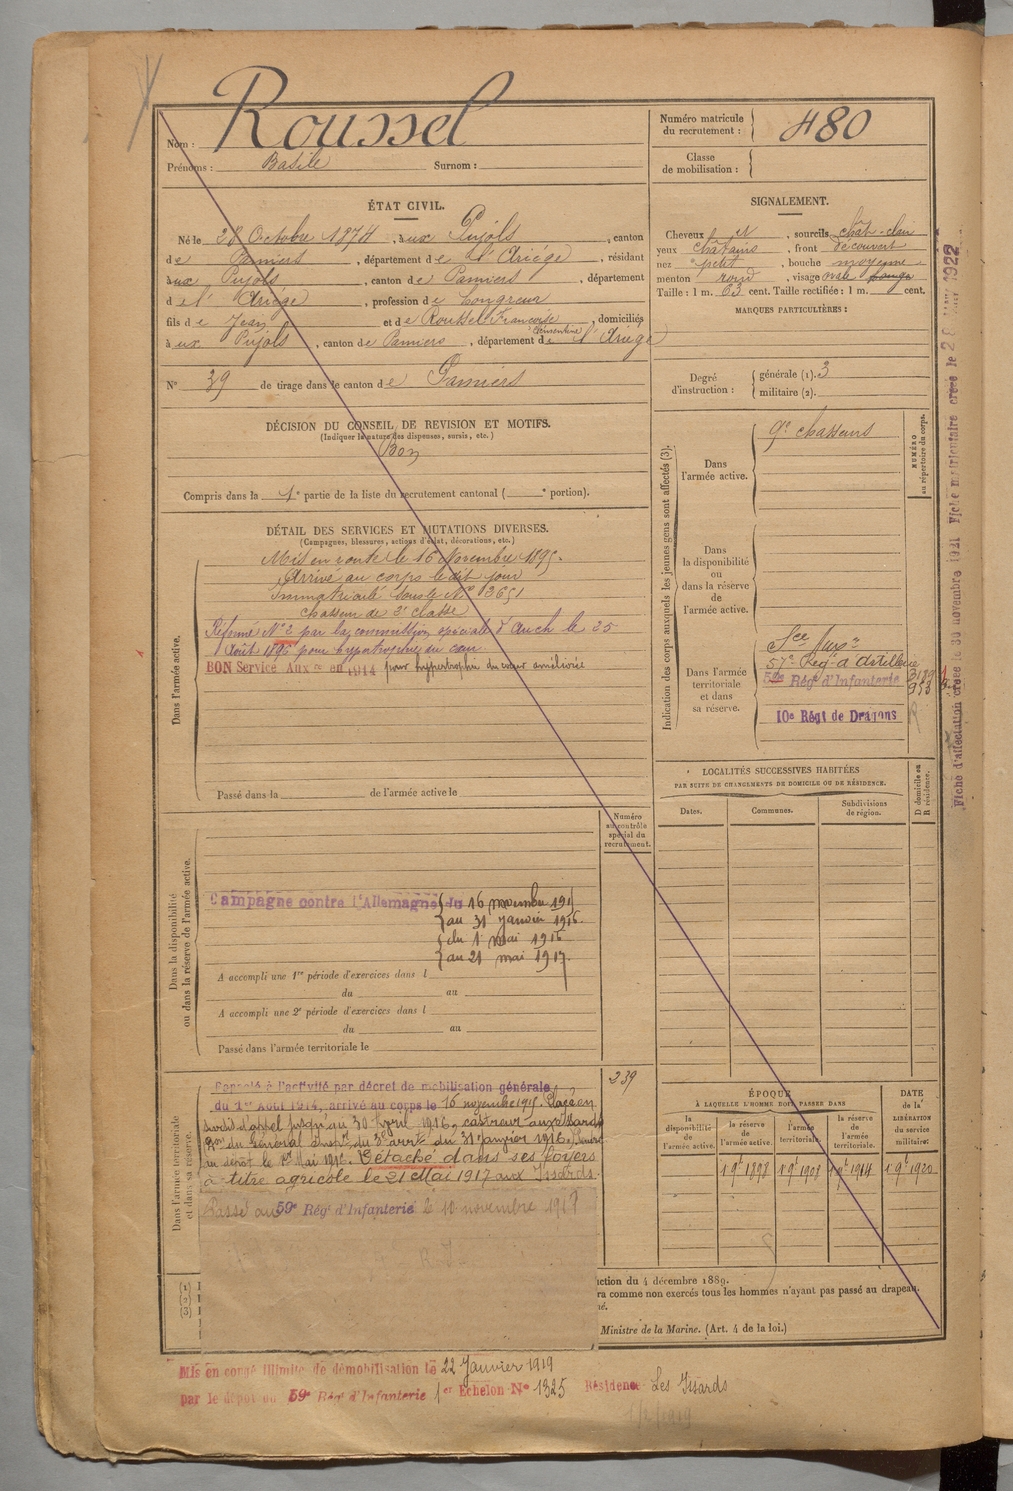 Nom : Roussel
Prénoms : Basile Surnom :
Numéro matricule du recrutement : 480
Classe de mobilisation :
ÉTAT CIVIL.
Né le 28 Octobre 1874, à aux Pujols, canton
de Pamiers, département de l'Ariège, résidant
à aux Pujols, canton de Pamiers, département
de l'Ariège, profession de
fils de Jean et de Roussel Françoise Clémentine, domiciliés
à aux Pujols, canton de Pamiers, département de l'Ariège
N° 39 de tirage dans le canton de Pamiers
SIGNALEMENT.
Cheveux et, sourcils chât. clair
yeux châtains, front découvert
nez petit, bouche moyenne
menton rond, visage ovale
Taille : 1 m. 63 cent. Taille rectifiée : 1 m. cent.
MARQUES PARTICULIÈRES :
Degré d'instruction : générale (1). 3
militaire (2).
DÉCISION DU CONSEIL DE REVISION ET MOTIFS.
(Indiquer la nature des dispenses, sursis, etc.)
Bon
Compris dans la 1e partie de la liste du recrutement cantonal ( e portion).
DÉTAIL DES SERVICES ET MUTATIONS DIVERSES.
(Campagnes, blessures, actions d'éclat, décorations, etc.)
Dans l'armée active.
Mis en route le 16 Novembre 1895.
Arrivé au corps le dit jour
Immatriculé sous le N° 3651
chasseur de 2e classe
Réformé N° 2 par la commission spéciale d'Auch le 25
Août 1896 pour hypertrophie du cœur
BON Service Aux re en 1914 pour hypertrophie du cœur améliorée
Passé dans la de l'armée active le
Indication des corps auxquels les jeunes gens sont affectés (3).
NUMÉRO au répertoire du corps.
Dans l'armée active.
9e chasseurs
Dans la disponibilité ou dans la réserve de l'armée active.
Dans l'armée territoriale et dans sa réserve.
57e Rég. d'Artillerie
59e Régt d'Infanterie
10e Régt de Dragons
Fiche d'affectation créée le 30 novembre 1921 Fiche matriculaire créée le 28 1922
LOCALITÉS SUCCESSIVES HABITÉES
PAR SUITE DE CHANGEMENTS DE DOMICILE OU DE RÉSIDENCE.
Dates. Communes. Subdivisions de région. D domicile ou R résidence.
Numéro au contrôle spécial du recrutement.
Dans la disponibilité ou dans la réserve de l'armée active.
Campagne contre l'Allemagne du 16 novembre 1915
au 31 janvier 1916.
du 1 mai 1916
au 21 mai 1917.
A accompli une 1re période d'exercices dans l
du au
A accompli une 2e période d'exercices dans l
du au
Passé dans l'armée territoriale le
239
Dans l'armée territoriale et dans sa réserve.
Rappelé à l'activité par décret de mobilisation générale
du 1er Août 1914, arrivé au corps le 16 novembre 1915. Placé en
sursis d'appel jusqu'au 30 Avril 1916, castreur aux Issards
du Général du 31 janvier 1916.
au dépôt le 1er Mai 1916. Détaché dans ses foyers
à titre agricole le 21 Mai 1917 aux Issards.
Passé au 59e Régt d'Infanterie le 10 novembre 1917
ÉPOQUE
À LAQUELLE L'HOMME DOIT PASSER DANS
la disponibilité de l'armée active. la réserve de l'armée active. l'armée territoriale. la réserve de l'armée territoriale.
DATE de la LIBÉRATION du service militaire :
1 9e 1898 1 9e 1908 1 9e 1914 1 9e 1920
(1)
(2)
(3)
ction du 4 décembre 1889.
ra comme non exercés tous les hommes n'ayant pas passé au drapeau.
Ministre de la Marine. (Art. 4 de la loi.)
Mis en congé illimité de démobilisation le 22 Janvier 1919
par le dépôt du 59e Régt d'Infanterie 1er Echelon N° 1325 Résidence Les Issards